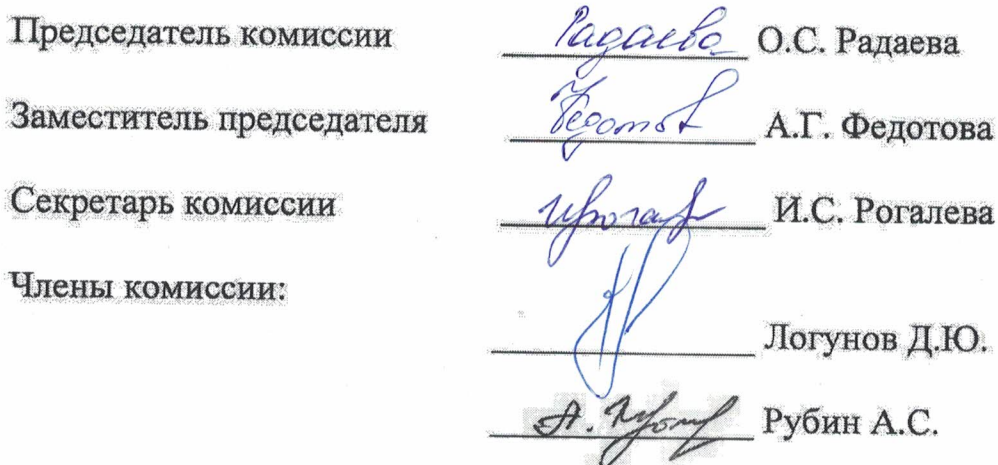 Председатель комиссии Радаева О.С. Радаева
Заместитель председателя Федотов А.Г. Федотова
Секретарь комиссии И.С. Рогалева
Члены комиссии:
Логунов Д.Ю.
Рубин А.С.